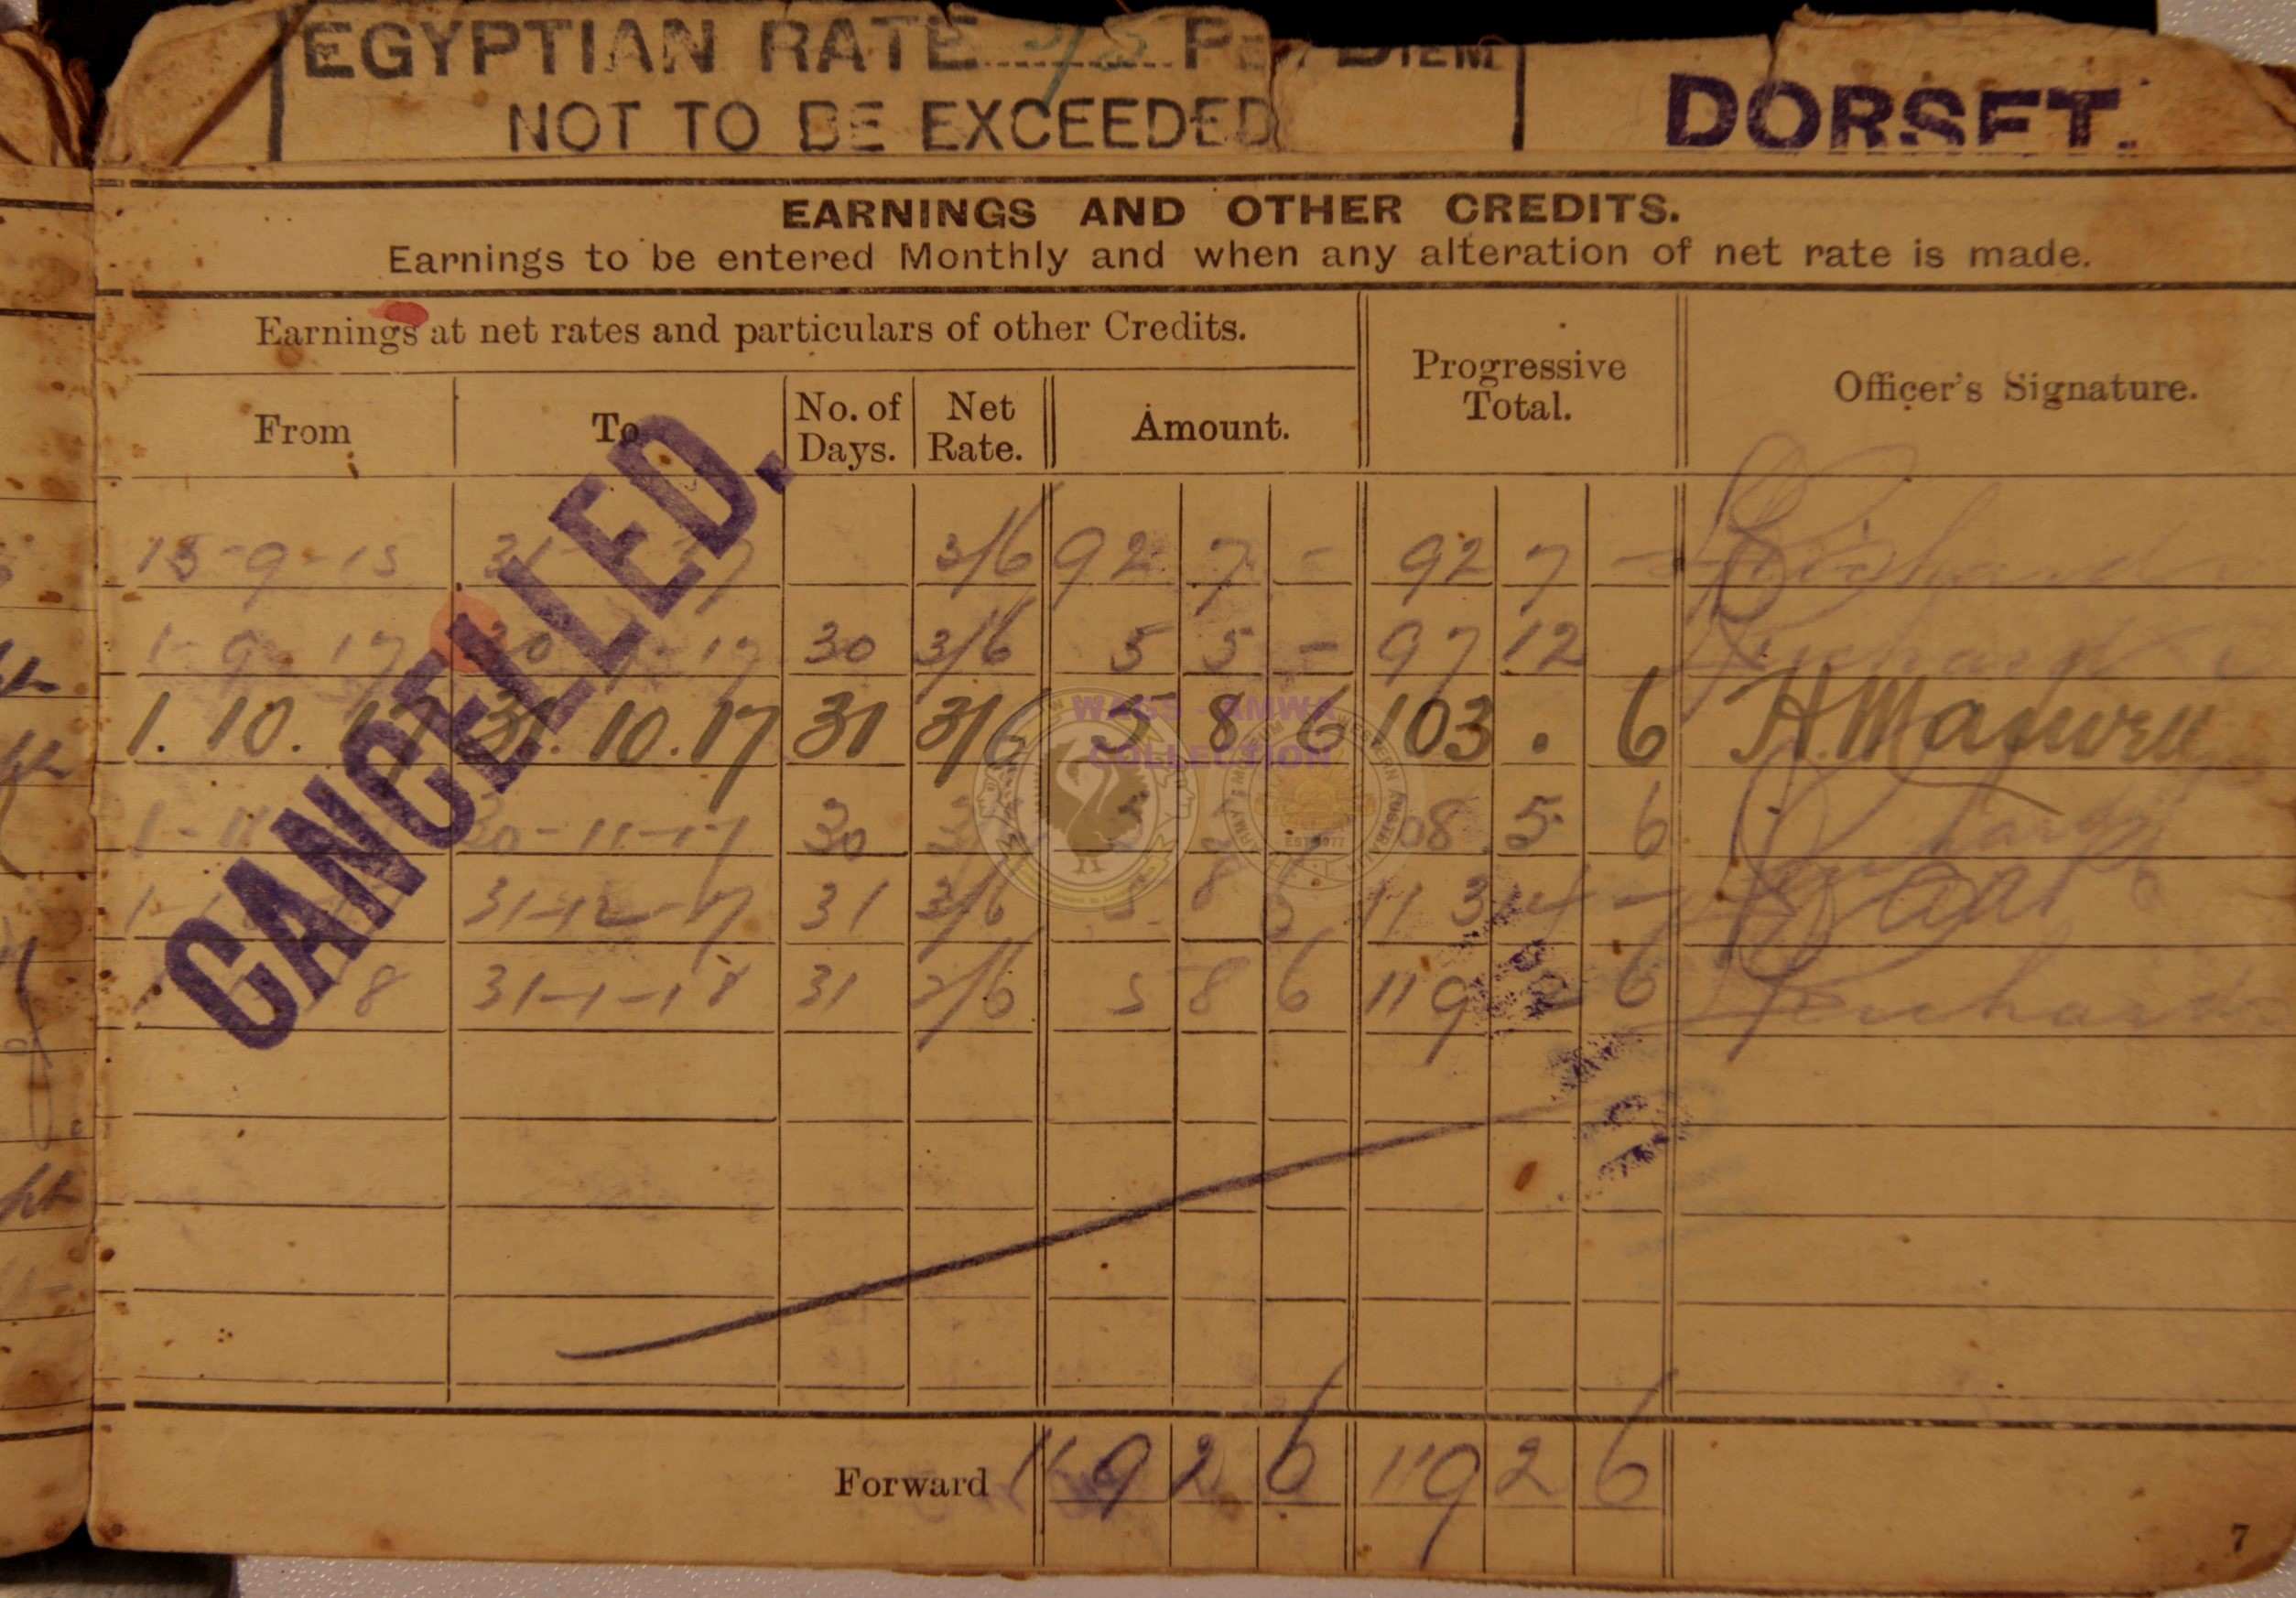 EGYPTIAN RATE PER DIEM
NOT TO BE EXCEEDED
DORSET.
EARNINGS AND OTHER CREDITS.
Earnings to be entered Monthly and when any alteration of net rate is made.
Earnings at net rates and particulars of other Credits.
Progressive Total.
Officer's Signature.
From To No. of Days. Net Rate. Amount.
15-9-15 31 17 3/6 92 7 - 92 7 -
1-9-17 30 17 30 3/6 5 5 - 97 12
1.10.17 31.10.17 31 3/6 5 8 6 103 . 6 H. Maxwell
1-11 30-11-17 30 3/6 5 5 108 5 6
1-1 31-12-17 31 3/6 5 8 6 113 14 -
8 31-1-18 31 3/6 5 8 6 119 2 6
CANCELLED.
WAGS - AMWA
COLLECTION
Forward 119 2 6 119 2 6
7